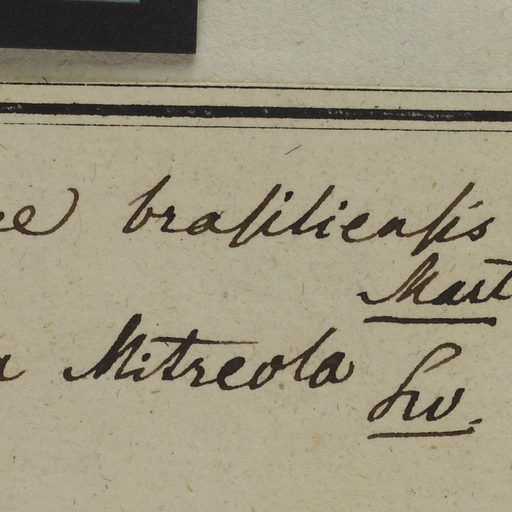 ee brasiliensis
Mart
a Mitreola
Sw.